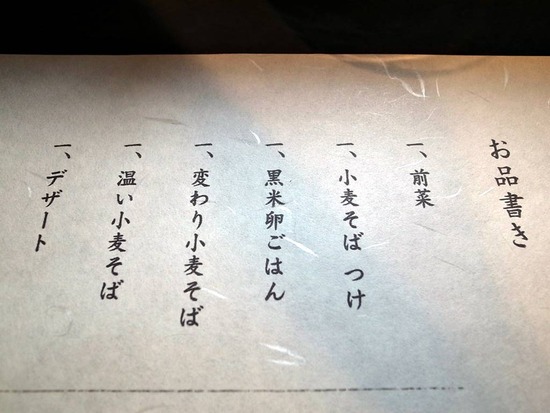 お品書き
一、前菜
一、小麦そば つけ
一、黒米卵ごはん
一、変わり小麦そば
一、温い小麦そば
一、デザート